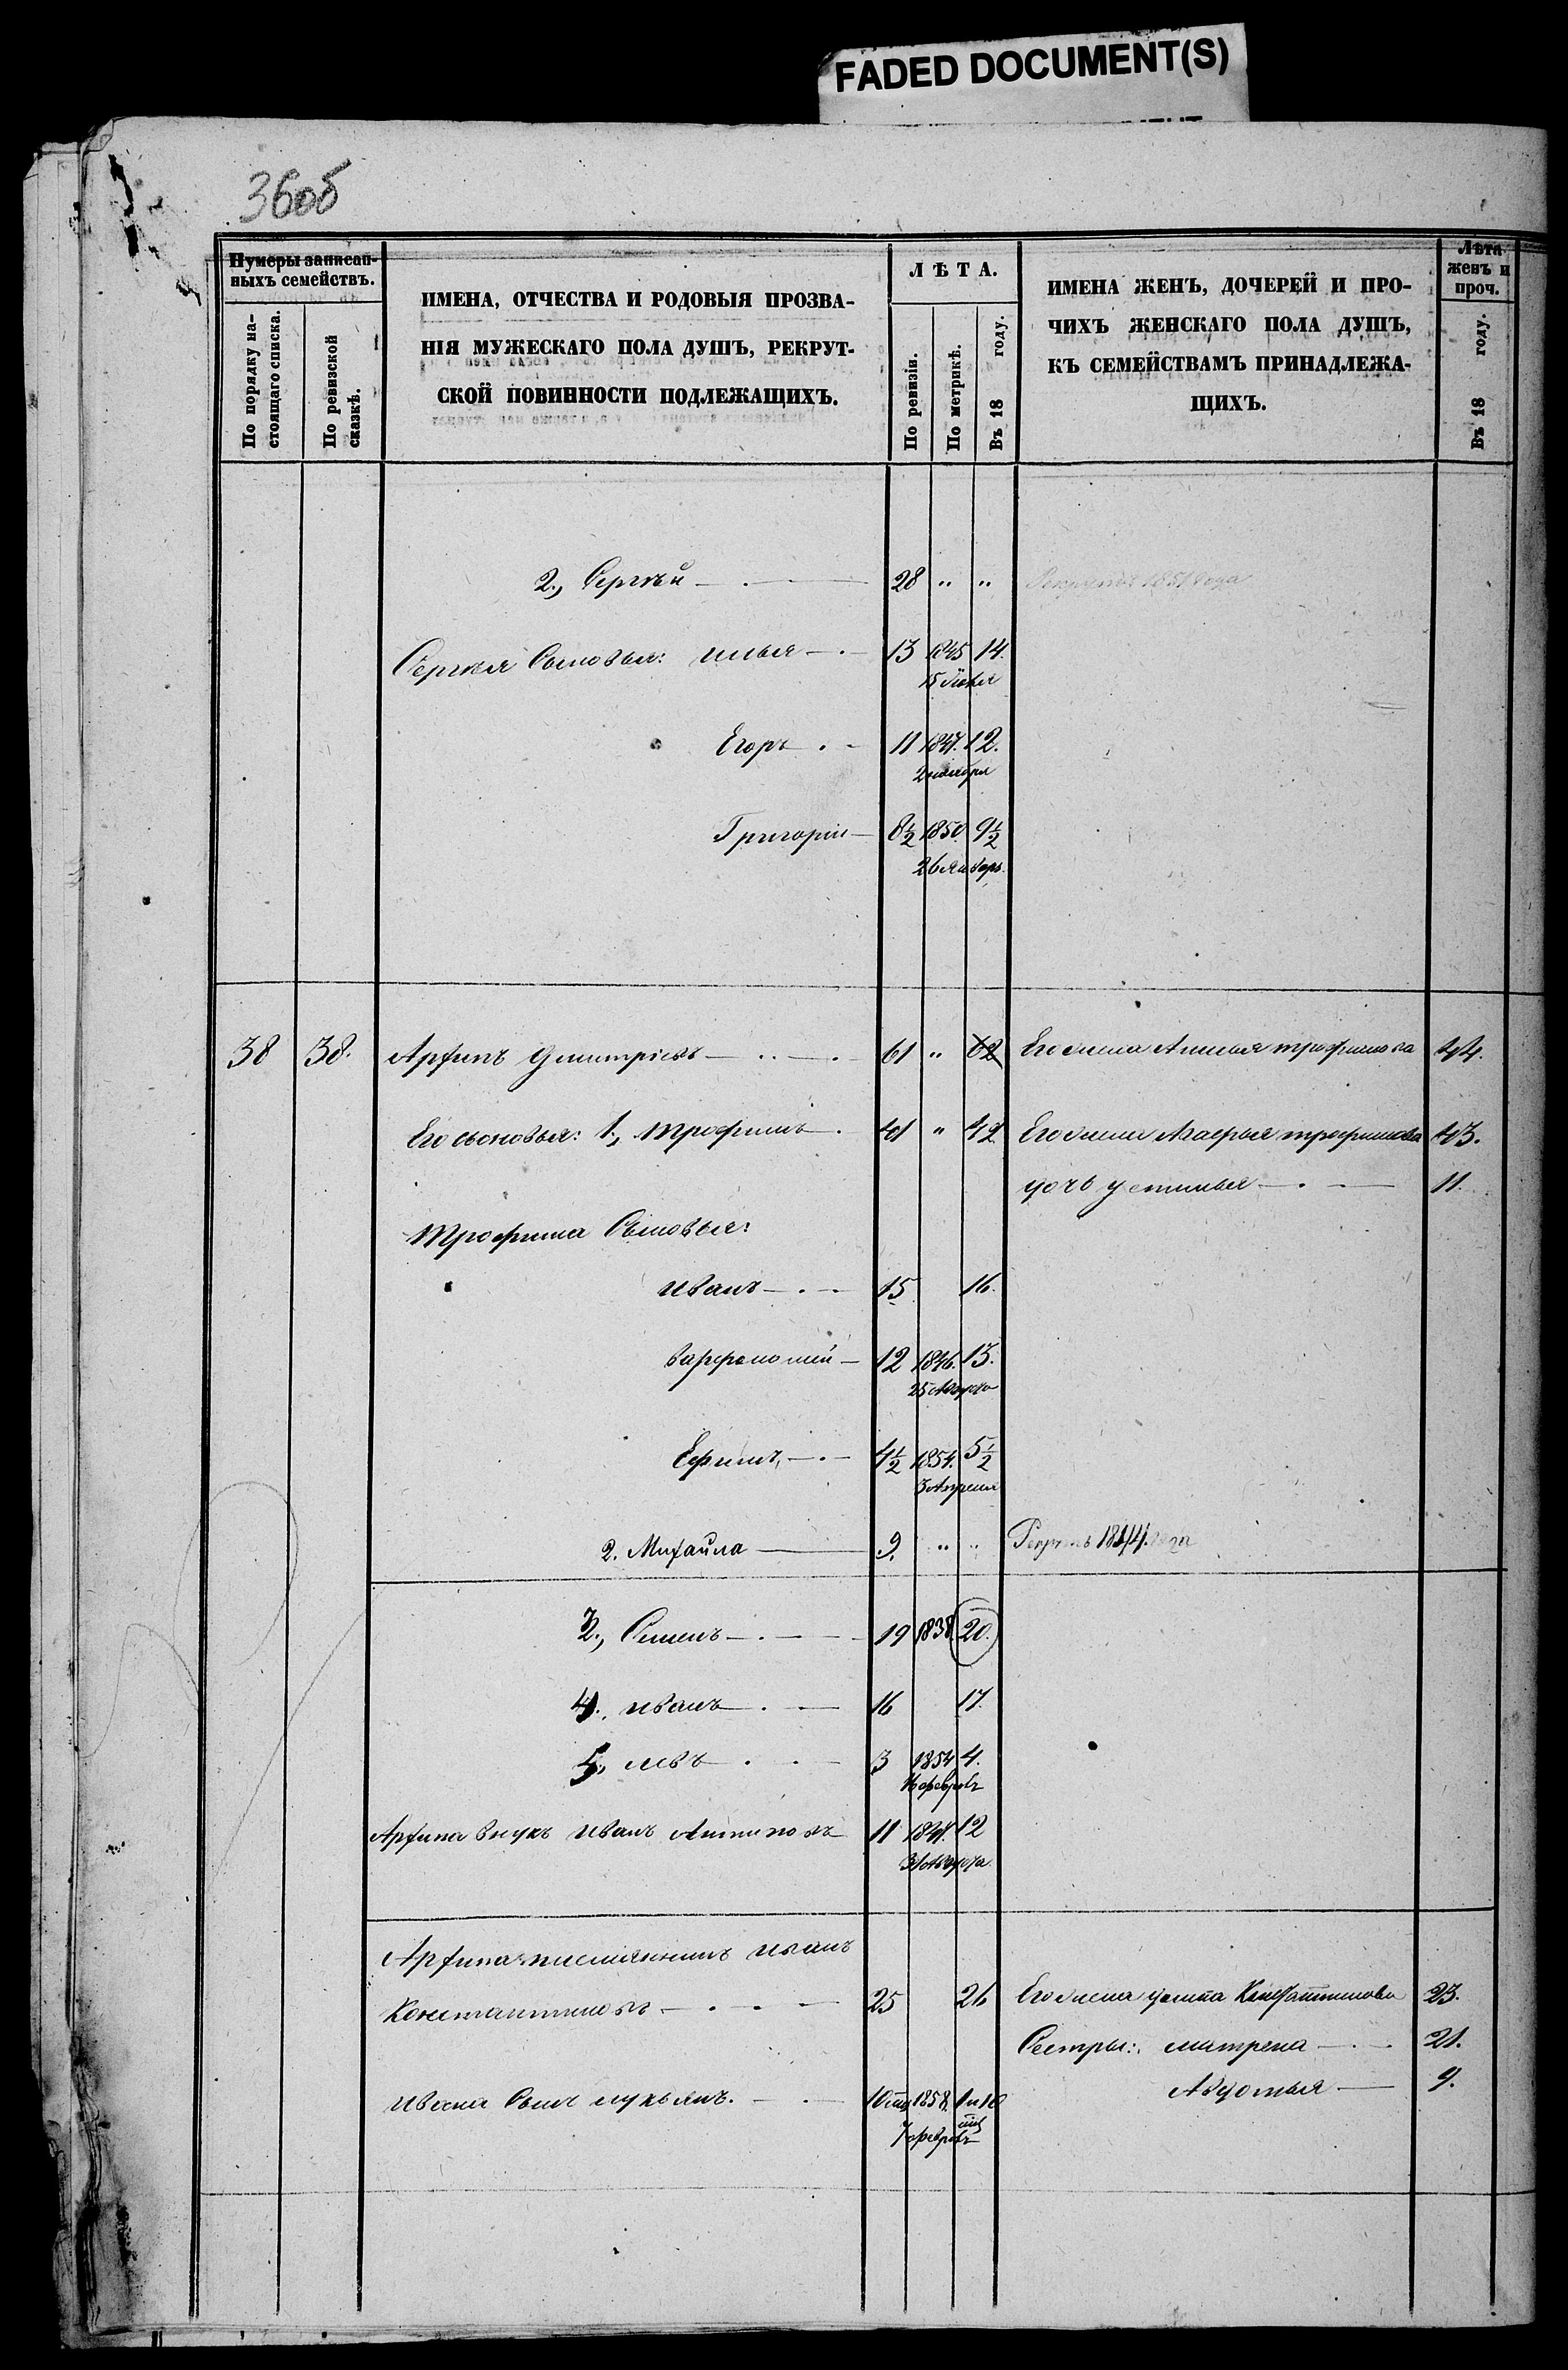 FADED DOCUMENT(S)
36об
Нумеры записан-
ныхъ семействъ.
По порядку на-
стоящаго списка.
По ревизской
сказкѣ.
ИМЕНА, ОТЧЕСТВА И РОДОВЫЯ ПРОЗВА-
НІЯ МУЖЕСКАГО ПОЛА ДУШЪ, РЕКРУТ-
СКОЙ ПОВИННОСТИ ПОДЛЕЖАЩИХЪ.
ЛѢТА.
По ревизіи.
По метрикѣ.
Въ 18 году.
ИМЕНА ЖЕНЪ, ДОЧЕРЕЙ И ПРО-
ЧИХЪ ЖЕНСКАГО ПОЛА ДУШЪ,
КЪ СЕМЕЙСТВАМЪ ПРИНАДЛЕЖА-
ЩИХЪ.
Лѣта
женъ и
проч.
Въ 18 году.
2., Сергѣй — . — 28 " " Рекрутъ 1851 года
Сергѣя Сыновья: илья — . — 13 1845 14.
15 Іюля
Егоръ . - 11 1847. 12.
2 ноября
Григорій — 8½ 1850. 9½
26 Январь.
38 38. Архипъ Дмитріевъ — .. — . 61 " 62 Его жена Анисья трофимова 44.
Его сыновья: 1., трофимъ — . 41 " 42 Его жена трофимова 43.
дочь устинья — . — 11.
Трофима Сыновья:
иванъ — . — 15. 16.
варфоломей — 12 1846. 13.
25 Августа
Ефимъ, — . — 4½ 1854. 5½
3 Апреля
2. Михайла — 9. " " Рекрутъ года
3., Семенъ — . — 19 1838 20.
4., иванъ — . — 16 17.
5., левъ . — 3 1854 4.
Архипа внукъ иванъ Антиповъ 11 1847. 12
31 Августа.
Архипа племянникъ иванъ
Константиновъ — . - — 25 26 Его жена Константинова 23.
Сестры: матрена — . — 21.
ивана Сынъ лукьянъ. — . — 10 мц 1858. 1 и 10 Авдотья — 9.
мц